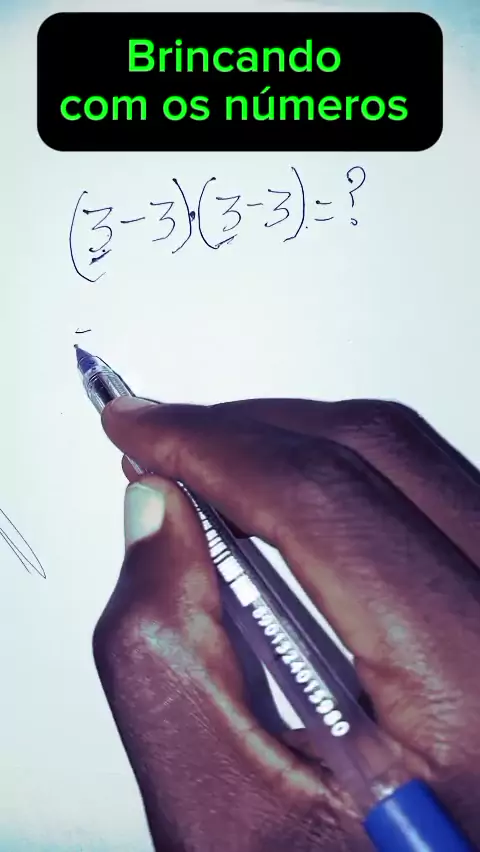 Brincando
com os números
(3-3)·(3-3)=?
=
8901324013980